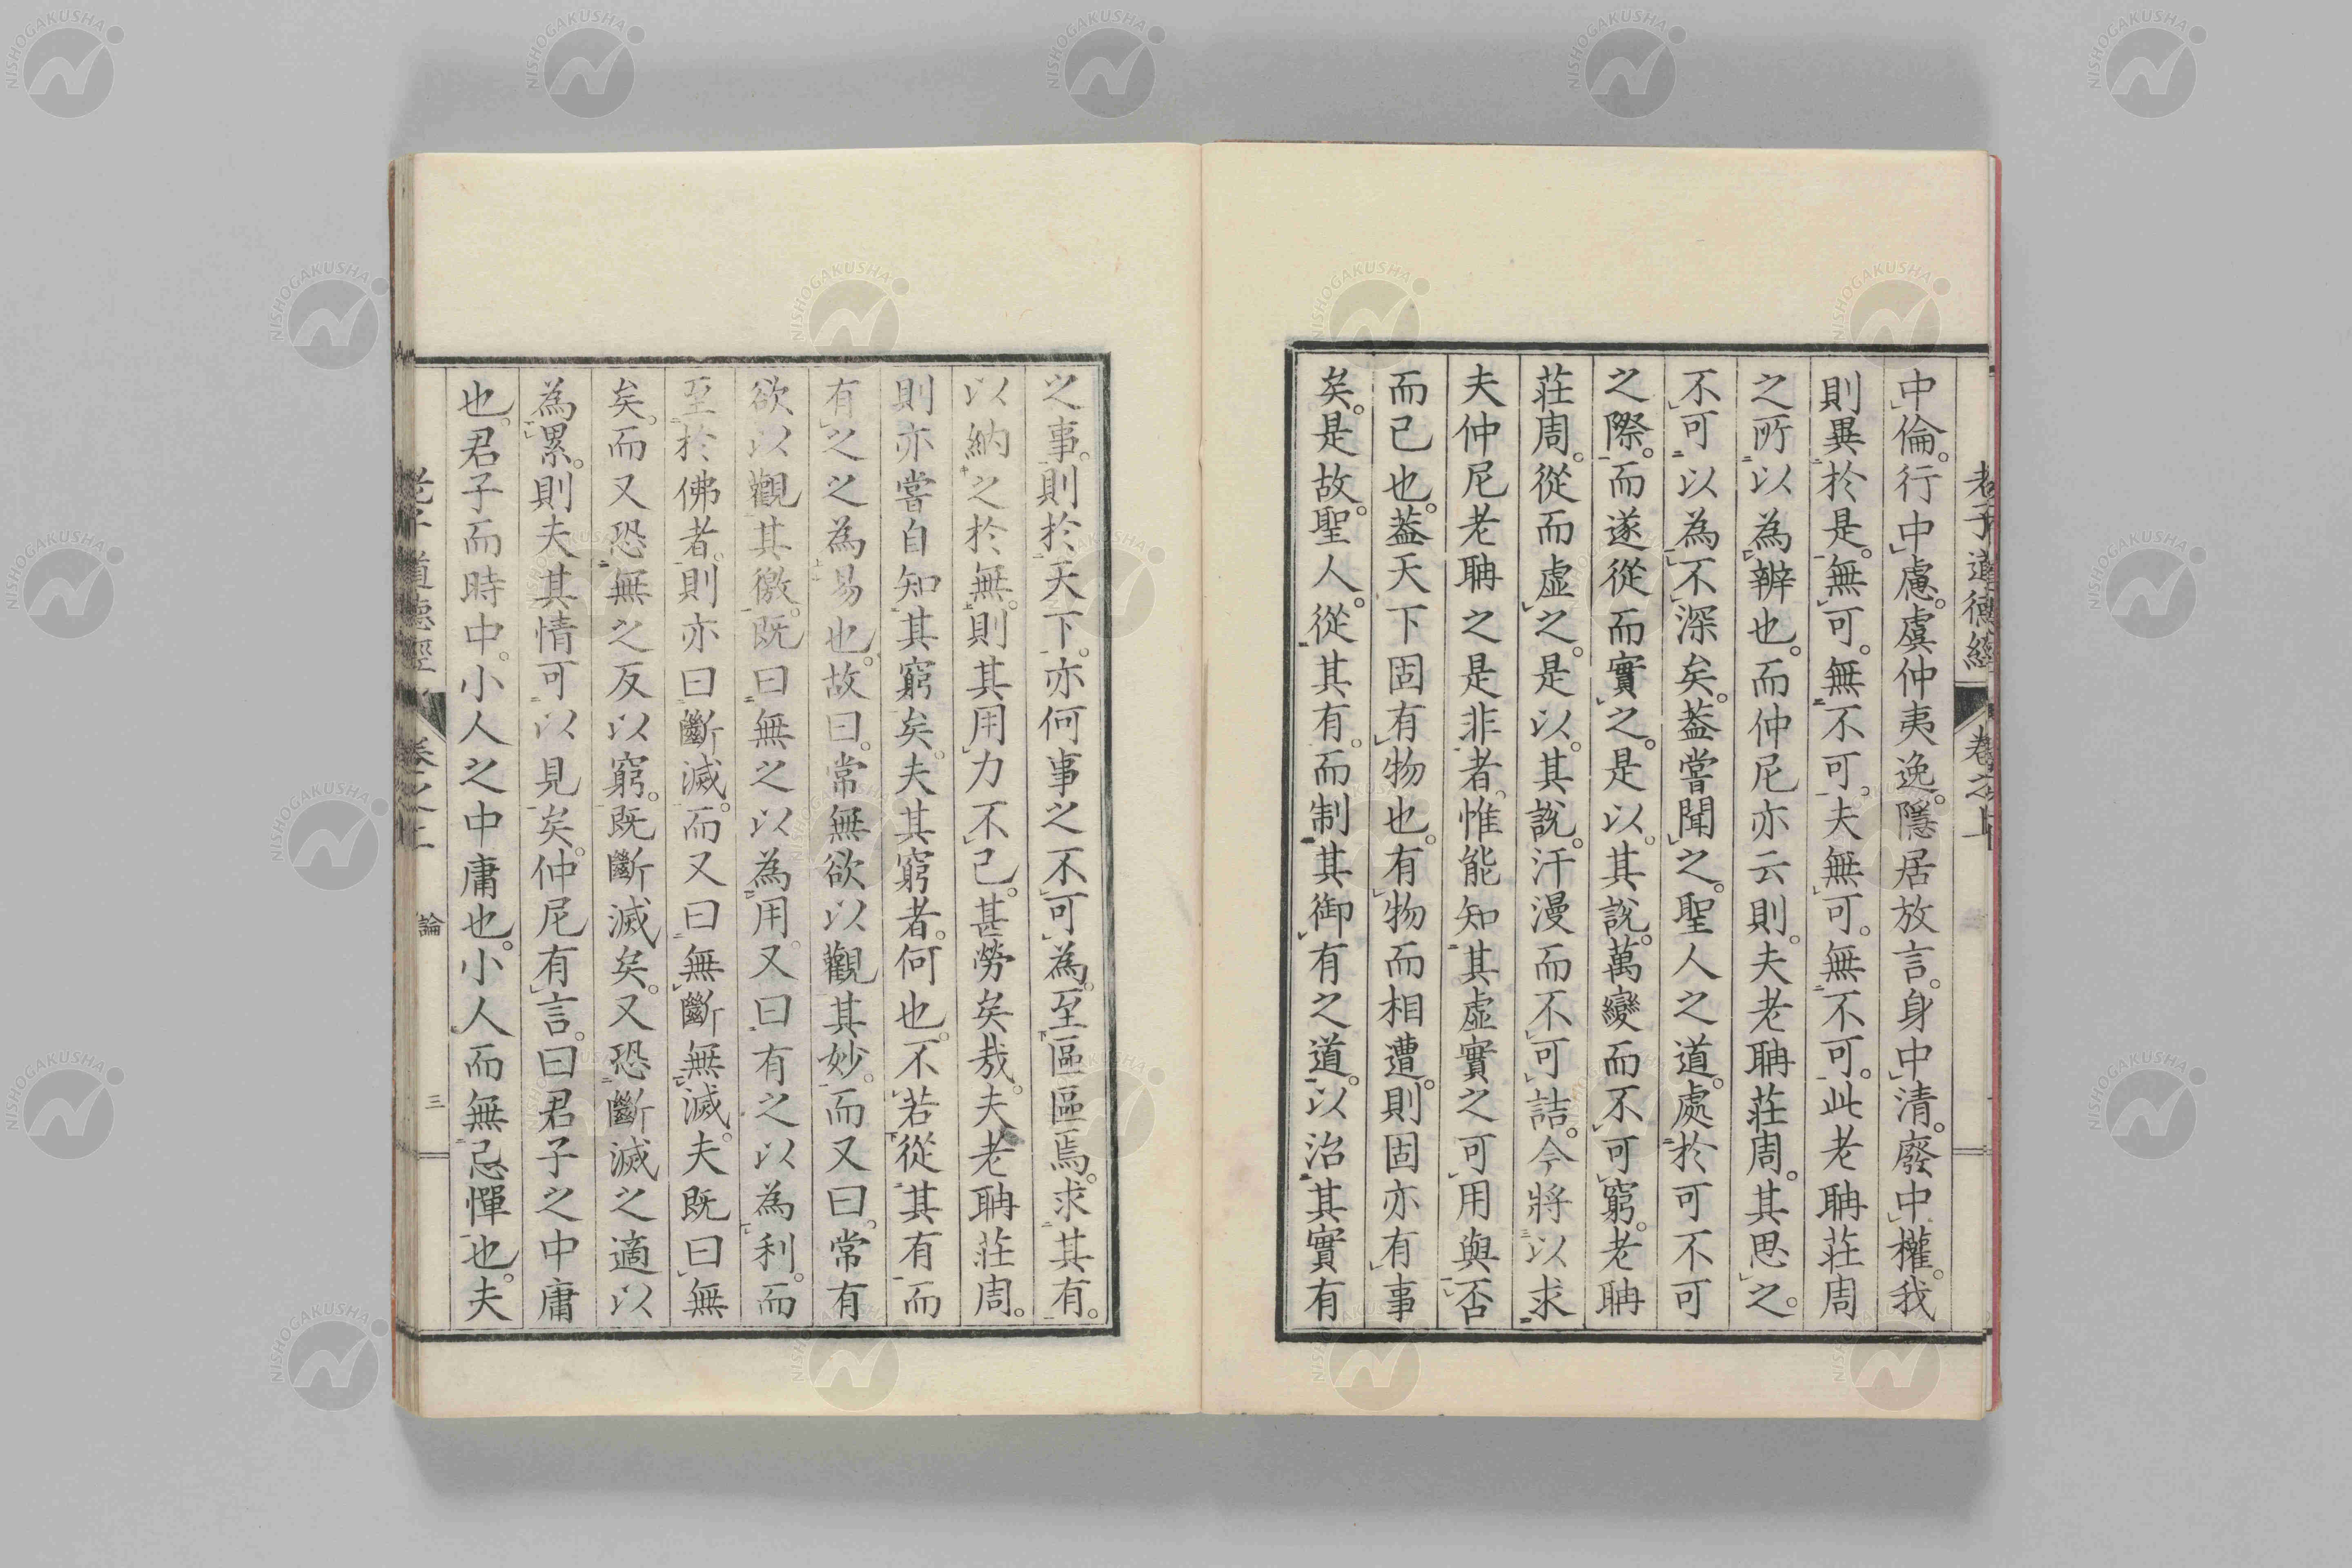 老子道德經 卷之上
中倫。行中慮。虞仲夷逸。隱居放言。身中清。廢中權。我
則異於是。無可。無不可。夫無可。無不可。此老聃莊周
之所以為辨也。而仲尼亦云則。夫老聃莊周。其思之。
不可以為不深矣。葢嘗聞之。聖人之道。處於可不可
之際。而遂從而實之。是以。其說。萬變而不可窮。老聃
莊周。從而虛之。是以。其說。汗漫而不可詰。今將以求
夫仲尼老聃之是非者。惟能知其虛實之可用與否
而已也。葢天下固有物也。有物而相遭。則固亦有事
矣。是故。聖人。從其有。而制其御有之道。以治其實有
之事。則於天下。亦何事之不可為。至區區焉。求其有。
以納之於無。則其用力不已。甚勞矣哉。夫老聃莊周。
則亦嘗自知其窮矣。夫其窮者。何也。不若從其有而
有之之為易也。故曰。常無欲以觀其妙。而又曰。常有
欲以觀其徼。既曰無之以為用。又曰有之以為利。而
至於佛者。則亦曰斷滅。而又曰無斷無滅。夫既曰無
矣。而又恐無之反以窮。既斷滅矣。又恐斷滅之適以
為累。則夫其情可以見矣。仲尼有言。曰君子之中庸
也。君子而時中。小人之中庸也。小人而無忌憚也。夫
老子道德經 卷之上 論 三
NISHOGAKUSHA